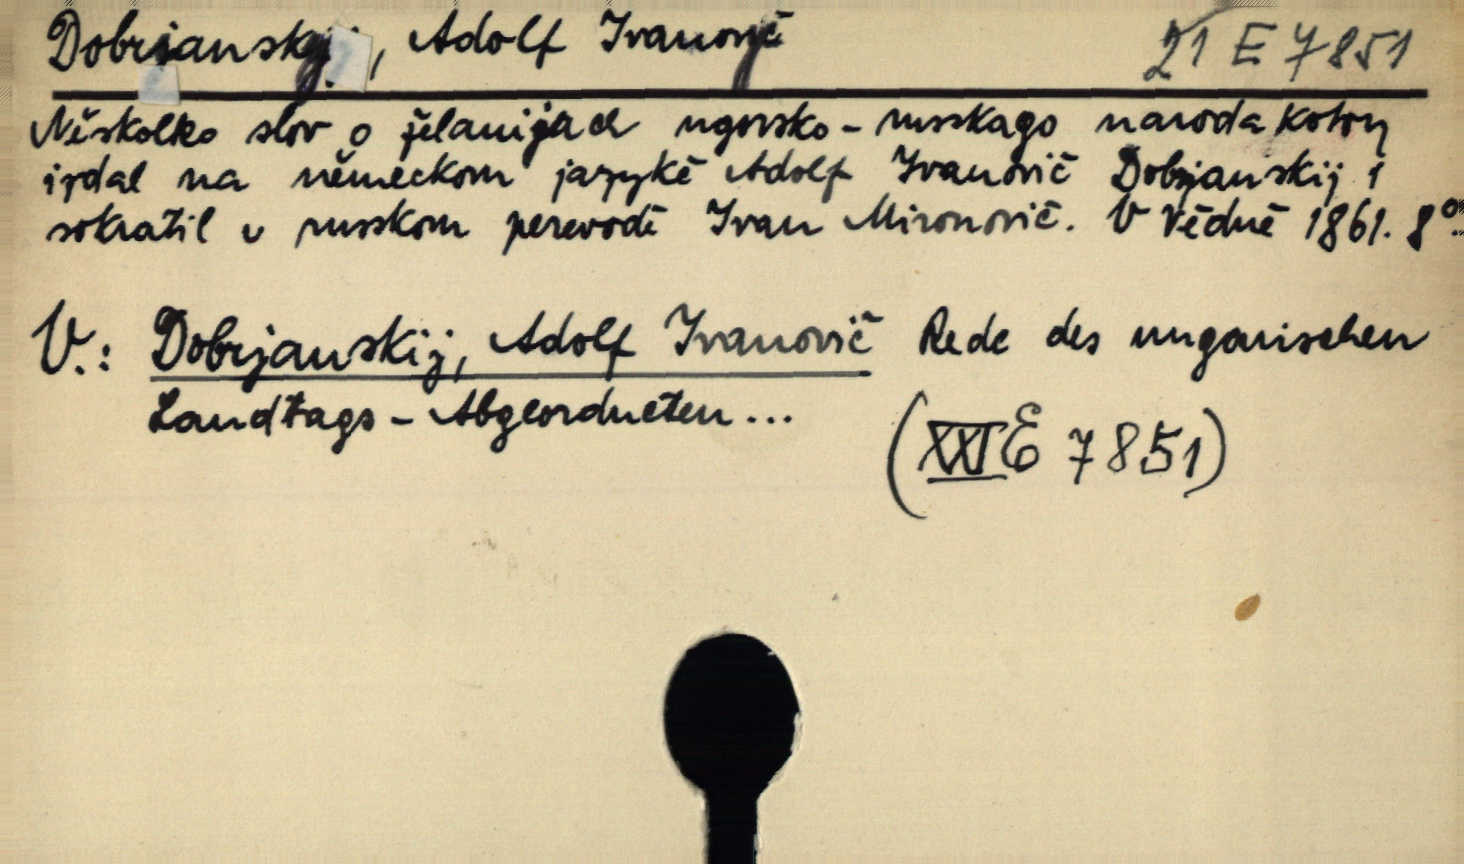 Dobrianskij, Adolf Ivanovič 21 E 7851
Něskolko slov o želanijach ugorsko-russkago naroda kotory
izdal na německom jazykě Adolf Ivanovič Dobrjanskij i
sokratil v russkom perevodě Ivan Mironovič. V Vědně 1861. 8°.
V.: Dobrjanskij, Adolf Ivanovič Rede des ungarischen
Landtags-Abgeordneten...
(XXI E 7851)